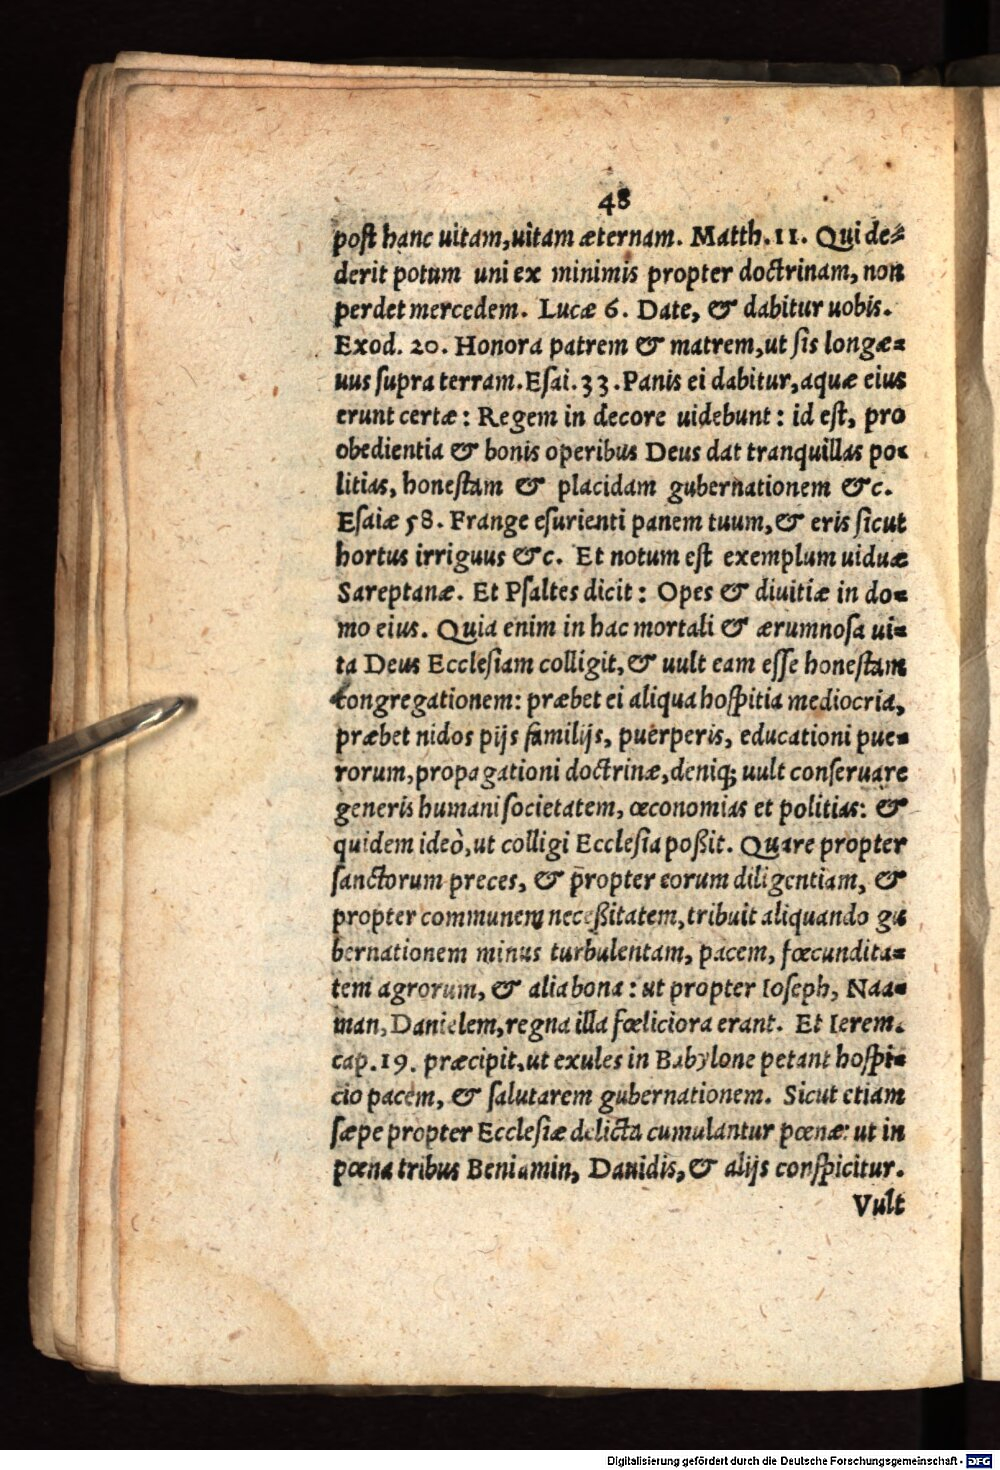 48
post hanc uitam, uitam æternam. Matth. 11. Qui de-
derit potum uni ex minimis propter doctrinam, non
perdet mercedem. Lucæ 6. Date, & dabitur uobis.
Exod. 20. Honora patrem & matrem, ut sis longæ-
uus supra terram. Esai. 33. Panis ei dabitur, aquæ eius
erunt certæ: Regem in decore uidebunt: id est, pro
obedientia & bonis operibus Deus dat tranquillas po-
litias, honestam & placidam gubernationem &c.
Esaiæ 58. Frange esurienti panem tuum, & eris sicut
hortus irriguus &c. Et notum est exemplum uiduæ
Sareptanæ. Et Psaltes dicit: Opes & diuitiæ in do-
mo eius. Quia enim in hac mortali & ærumnosa ui-
ta Deus Ecclesiam colligit, & uult eam esse honestam
congregationem: præbet ei aliqua hospitia mediocria,
præbet nidos pijs familijs, puerperis, educationi pue-
rorum, propagationi doctrinæ, deniq; uult conseruare
generis humani societatem, œconomias et politias: &
quidem ideò, ut colligi Ecclesia poßit. Quare propter
sanctorum preces, & propter eorum diligentiam, &
propter communem neceßitatem, tribuit aliquando gu
bernationem minus turbulentam, pacem, fœcundita-
tem agrorum, & alia bona: ut propter Ioseph, Naa-
man, Danielem, regna illa fœliciora erant. Et Ierem.
cap. 19. præcipit, ut exules in Babylone petant hospi-
cio pacem, & salutarem gubernationem. Sicut etiam
sæpe propter Ecclesiæ delicta cumulantur pœnæ: ut in
pœna tribus Beniamin, Dauidis, & alijs conspicitur.
Vult
Digitalisierung gefördert durch die Deutsche Forschungsgemeinschaft - DFG